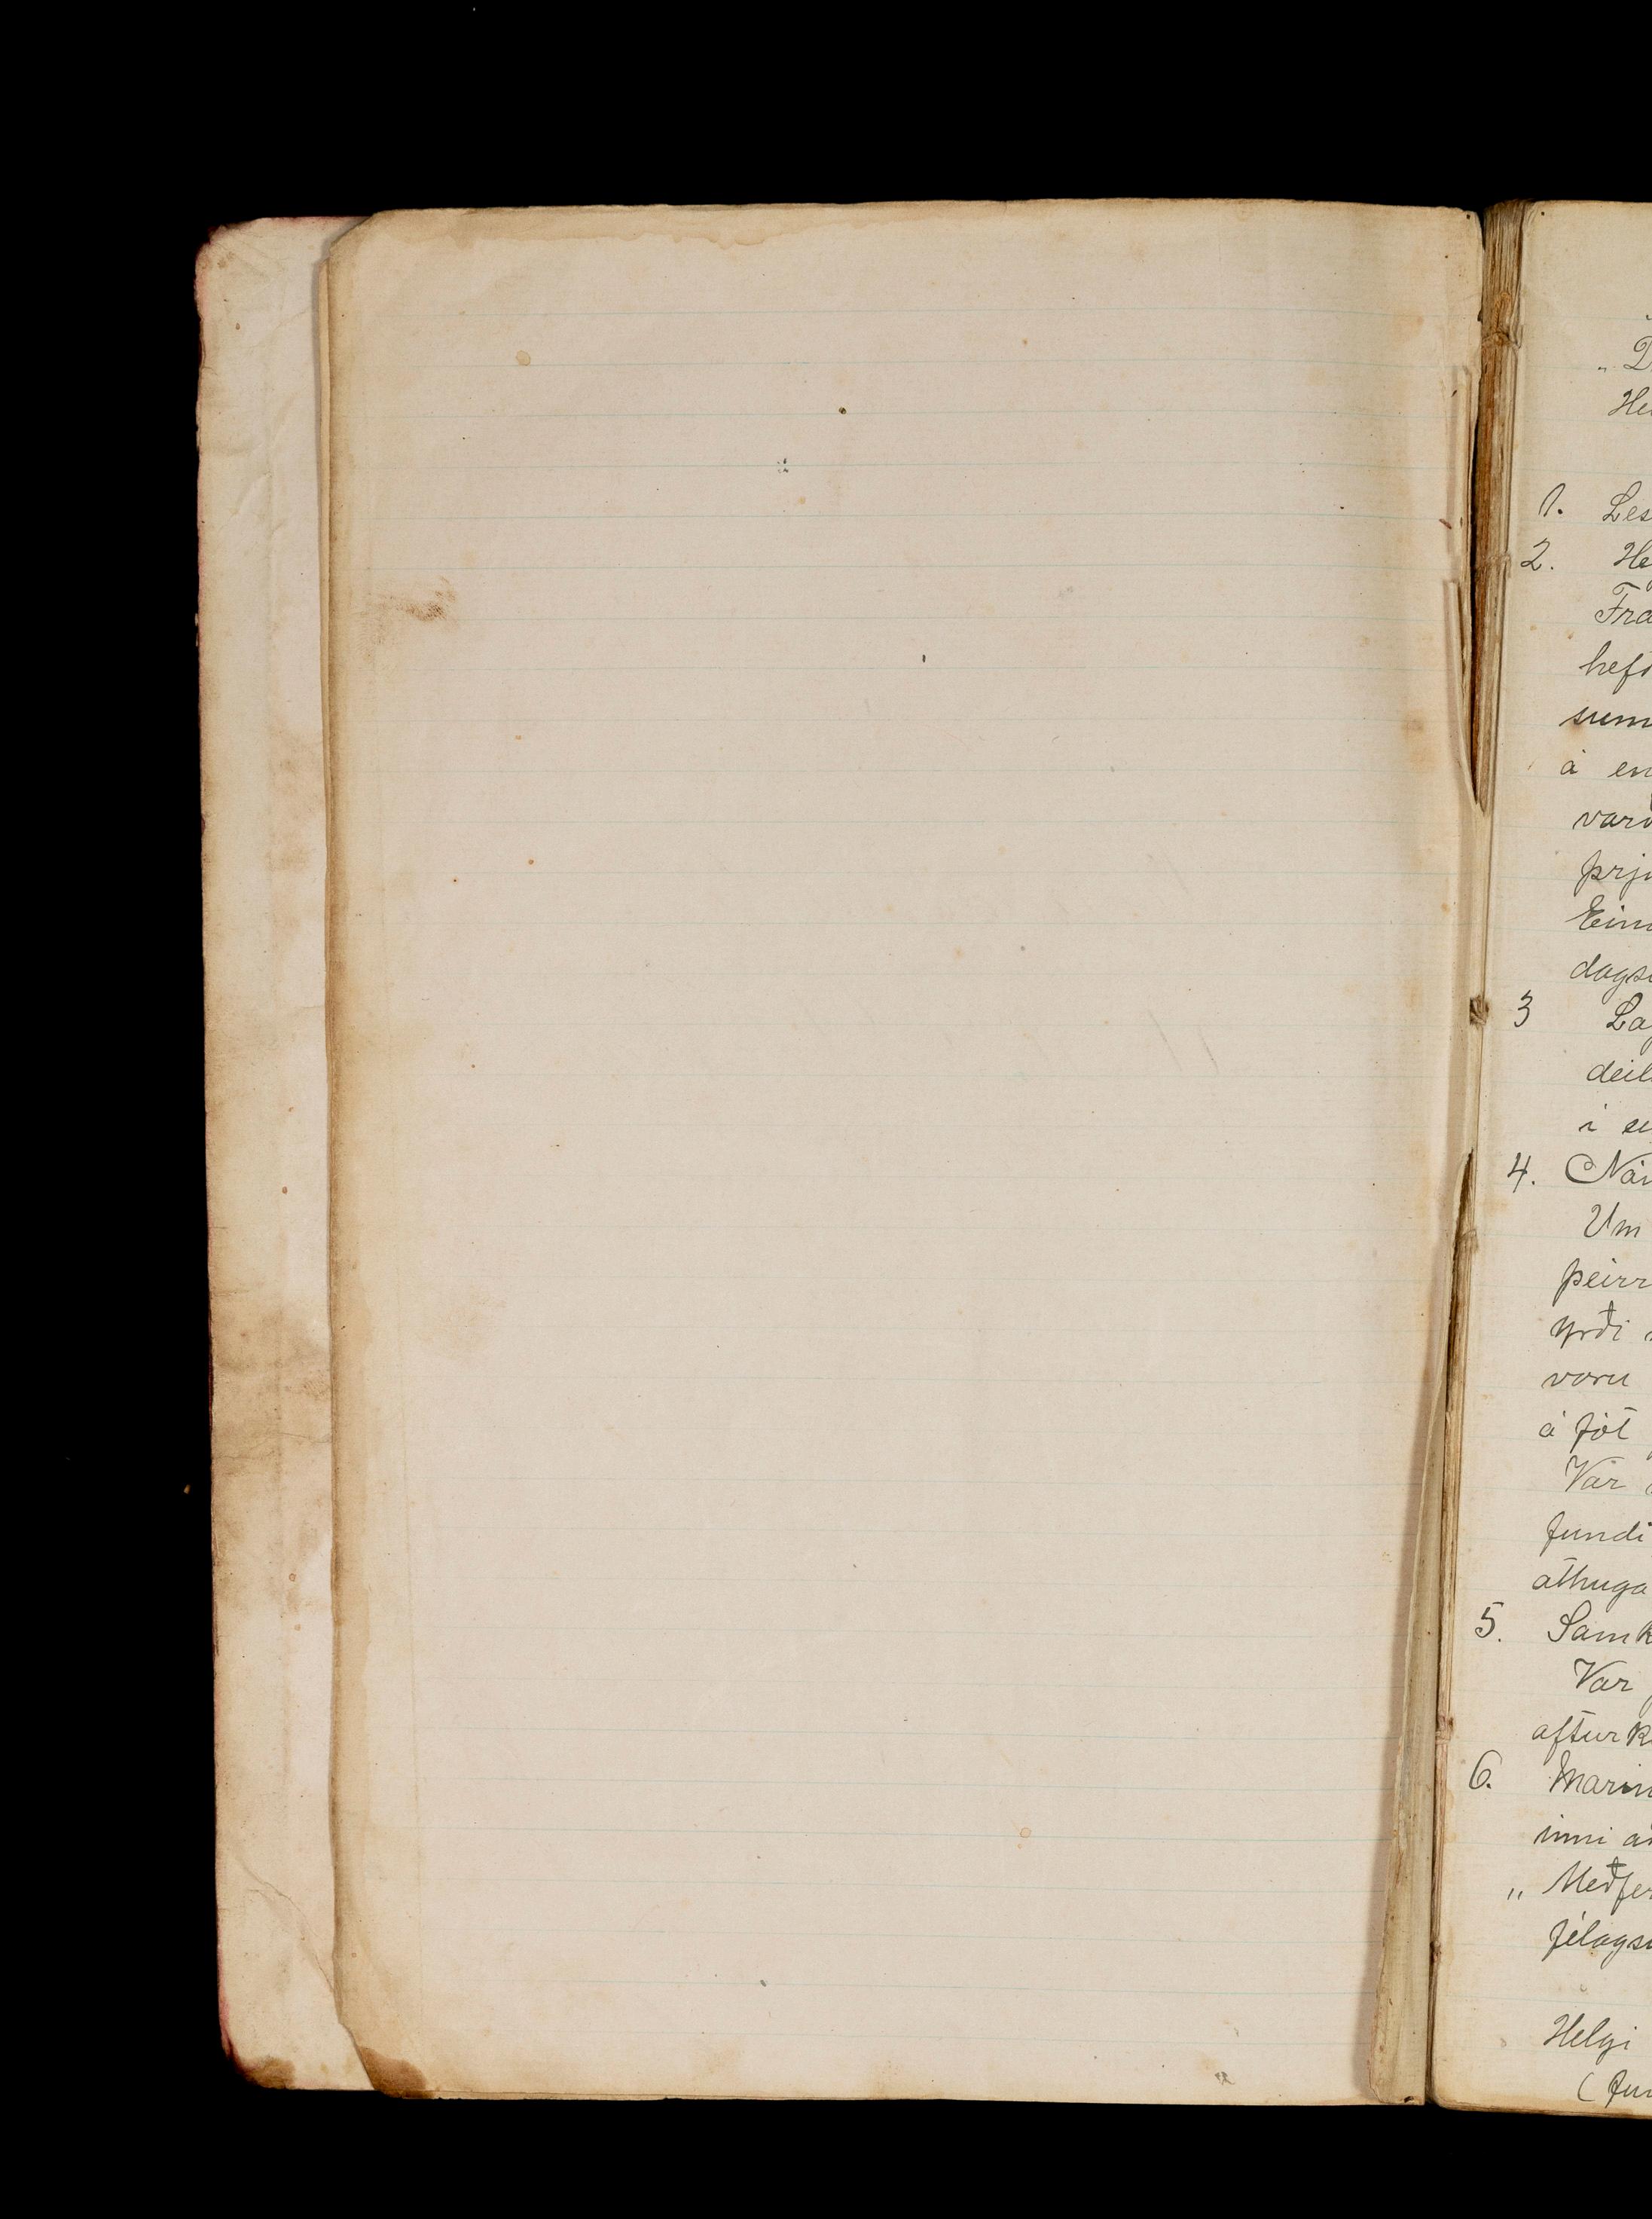 „ D
He
1. Les
2. He
Fra
hefi
sum
á en
varð
þrj
Ein
dags
3 La
deil
í se
4. Nái
Um
þeirr
yrði
voru
á fót
Var
fundi
athuga
5. Samk
Var
afturk
6. Marin
inni a
„ Meðfer
félags
Helgi
( fun